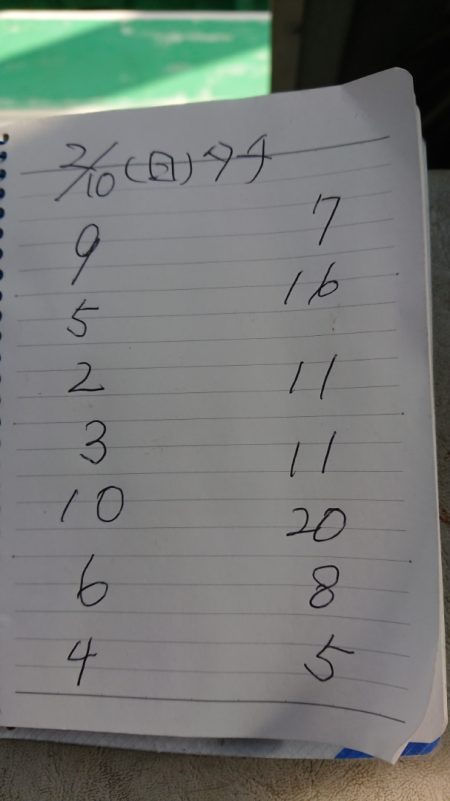 2/10(日)タチ
9 7
5 16
2 11
3 11
10 20
6 8
4 5